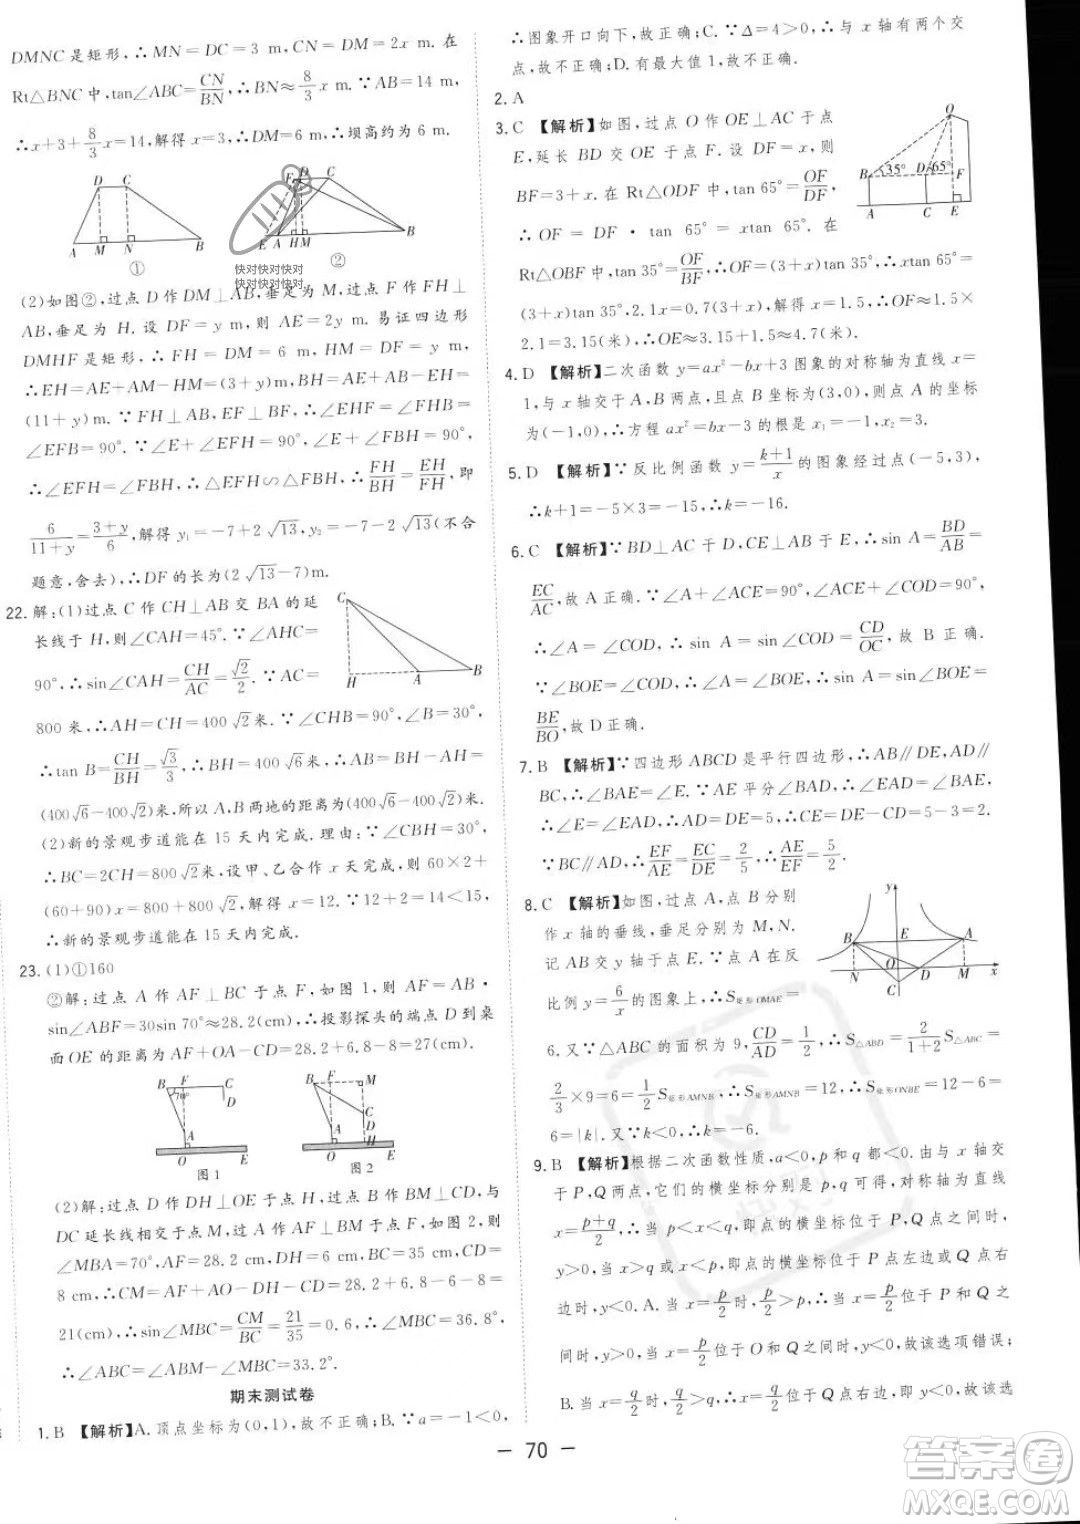 DMNC 是矩形,∴MN=DC=3 m,CN=DM=2x m. 在
Rt△BNC 中,tan∠ABC=CN/BN,∴BN≈8/3 x m. ∵AB=14 m,
∴x+3+8/3 x=14,解得 x=3,∴DM=6 m,∴坝高约为 6 m.
D C
A M N B
①
F D C
E A H M B
②
快对快对快对
快对快对快对
(2)如图②,过点 D 作 DM⊥AB,垂足为 M,过点 F 作 FH⊥
AB,垂足为 H. 设 DF=y m,则 AE=2y m. 易证四边形
DMHF 是矩形,∴FH=DM=6 m,HM=DF=y m.
∴EH=AE+AM-HM=(3+y)m,BH=AB+HM=
(11+y)m. ∵FH⊥AB,EF⊥BF,∴∠EHF=∠FHB=
∠EFB=90°. ∵∠E+∠EFH=90°,∠EFH+∠BFH=90°,
∴∠EFH=∠FBH,∴△EFH∽△FBH,∴FH/BH=EH/FH,即
6/(11+y)=(3+y)/6,解得 y₁=-7+2√13,y₂=-7-2√13(不合
题意,舍去),∴DF 的长为(2√13-7)m.
22. 解:(1)过点 C 作 CH⊥AB 交 BA 的延
长线于 H,则∠CAH=45°. ∵∠AHC=
90°,∴sin∠CAH=CH/AC=√2/2. ∵AC=
C
H A B
800 米,∴AH=CH=400√2米. ∵∠CHB=90°,∠B=30°,
∴tan B=CH/BH=√3/3,∴HB=400√6米,∴AB=BH-AH=
(400√6-400√2)米,所以 A,B 两地的距离为(400√6-400√2)米.
(2)新的景观步道能在 15 天内完成. 理由:∵∠CBH=30°,
∴BC=2CH=800√2米,设甲、乙合作 x 天完成,则 60×2+
(60+90)x=800+800√2,解得 x=12. ∵12+2=14<15,
∴新的景观步道能在 15 天内完成.
23. (1)①160
②解:过点 A 作 AF⊥BC 于点 F,如图 1,则 AF=AB·
sin∠ABF=30sin 70°≈28.2(cm),∴投影探头的端点 D 到桌
面 OE 的距离为 AF+OA-CD=28.2+6.8-8=27(cm).
B F C
70° D
A
O E
图 1
B F M
C
A D
O H E
图 2
(2)解:过点 D 作 DH⊥OE 于点 H,过点 B 作 BM⊥CD,与
DC 延长线相交于点 M,过点 A 作 AF⊥BM 于点 F,如图 2,则
∠MBA=70°,AF=28.2 cm,DH=6 cm,BC=35 cm,CD=
8 cm,∴CM=AF+AO-DH-CD=28.2+6.8-6-8=
21(cm),∴sin∠MBC=CM/BC=21/35=0.6,∴∠MBC=36.8°,
∴∠ABC=∠ABM-∠MBC=33.2°.
期末测试卷
1. B 【解析】A. 顶点坐标为(0,1),故不正确;B. ∵a=-1<0,
∴图象开口向下,故正确;C. ∵Δ=4>0,∴与 x 轴有两个交
点,故不正确;D. 有最大值 1,故不正确.
2. A
3. C 【解析】如图,过点 O 作 OE⊥AC 于点
E,延长 BD 交 OE 于点 F. 设 DF=x,则
BF=3+x. 在 Rt△ODF 中,tan 65°=OF/DF,
∴OF=DF·tan 65°=xtan 65°. 在
Rt△OBF 中,tan 35°=OF/BF=OF/(3+x),∴OF=(3+x)tan 35°,∴xtan 65°=
O
B 35° D 65° F
A C E
(3+x)tan35°,2.1x=0.7(3+x),解得 x=1.5,∴OF≈1.5×
2.1=3.15(米),∴OE≈3.15+1.5≈4.7(米).
4. D 【解析】二次函数 y=ax²-bx+3 图象的对称轴为直线 x=
1,与 x 轴交于 A,B 两点,且点 B 坐标为(3,0),则点 A 的坐标
为(-1,0),∴方程 ax²=bx-3 的根是 x₁=-1,x₂=3.
5. D 【解析】∵反比例函数 y=(k+1)/x 的图象经过点(-5,3),
∴k+1=-5×3=-15,∴k=-16.
6. C 【解析】∵BD⊥AC 于 D,CE⊥AB 于 E,∴sin A=BD/AB=
EC/AC,故 A 正确. ∵∠A+∠ACE=90°,∠ACE+∠COD=90°,
∴∠A=∠COD,∴sin A=sin∠COD=CD/OC,故 B 正确.
∵∠BOE=∠COD,∴∠A=∠BOE,∴sin A=sin∠BOE=
BE/BO,故 D 正确.
7. B 【解析】∵四边形 ABCD 是平行四边形,∴AB∥DE,AD∥
BC,∴∠BAE=∠E. ∵AE 平分∠BAD,∴∠EAD=∠BAE,
∴∠EAD=∠E,∴DE=AD=5,∴CE=DE-CD=5-3=2.
∵BC∥AD,∴EF/AE=EC/DE=2/5,∴AE/EF=5/2.
8. C 【解析】如图,过点 A,点 B 分别
作 x 轴的垂线,垂足分别为 M,N.
记 AB 交 y 轴于点 E. ∵点 A 在反
比例 y=6/x 的图象上,∴S矩形OMAE=
y
B E A
N O D M x
C
6. 又∵△ABC 的面积为 9,CD/AD=1/2,∴S△ABD=2/(1+2)S△ABC=
2/3×9=6=1/2 S矩形AMNB,∴S矩形AMNB=12,∴S矩形ONBE=12-
6=|k|. 又∵k<0,∴k=-6.
9. B 【解析】根据二次函数性质,a<0,p 和 q 都<0. 由与 x 轴交
于 P,Q 两点,它们的横坐标分别是 p,q 可得,对称轴为直线
x=(p+q)/2,∴当 p<x<q,即点的横坐标位于 P,Q 点之间时,
y>0;当 x>q 或 x<p,即点的横坐标位于 P 点左边或 Q 点右
边时,y<0. A. 当 x=p/2时,p/2>p,∴x=p/2位于 P 点和 Q 点之
间时,y>0;当 x=p/2位于 O 和 Q 之间时,y<0,故该选项错误;
B. 当 x=q/2时,q/2>q,∴x=q/2位于 Q 点右边,y<0,故该选
— 70 —
答案圈
MXQE.COM